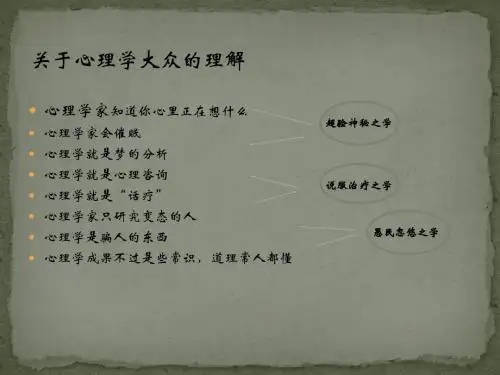 关于心理学大众的理解
心理学家知道你心里正在想什么
心理学家会催眠
心理学就是梦的分析
心理学就是心理咨询
心理学就是“话疗”
心理学家只研究变态的人
心理学是骗人的东西
心理学成果不过是些常识，道理常人都懂
超验神秘之学
说服治疗之学
愚民忽悠之学